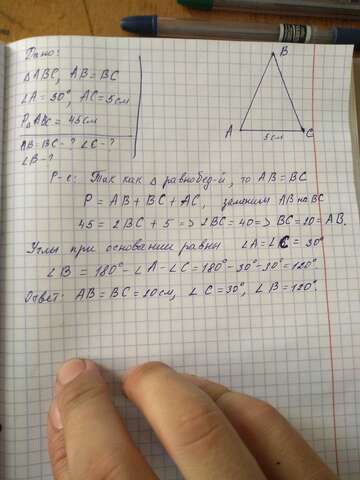 Дано:
△ABC, AB=BC
∠A = 30°, AC = 5см
P△ABC = 45см
AB=BC-? ∠C-?
∠B-?
B
A
C
5см
Р-е: Так как △ равнобед-й, то AB=BC
P = AB+BC+AC, заменим AB на BC
45 = 2BC + 5 => 2BC = 40 => BC = 20 = AB.
Углы при основании равны ∠A=∠C = 30°
∠B = 180°-∠A-∠C = 180°-30°-30°=120°
Ответ: AB=BC=20см, ∠C=30°, ∠B=120°.